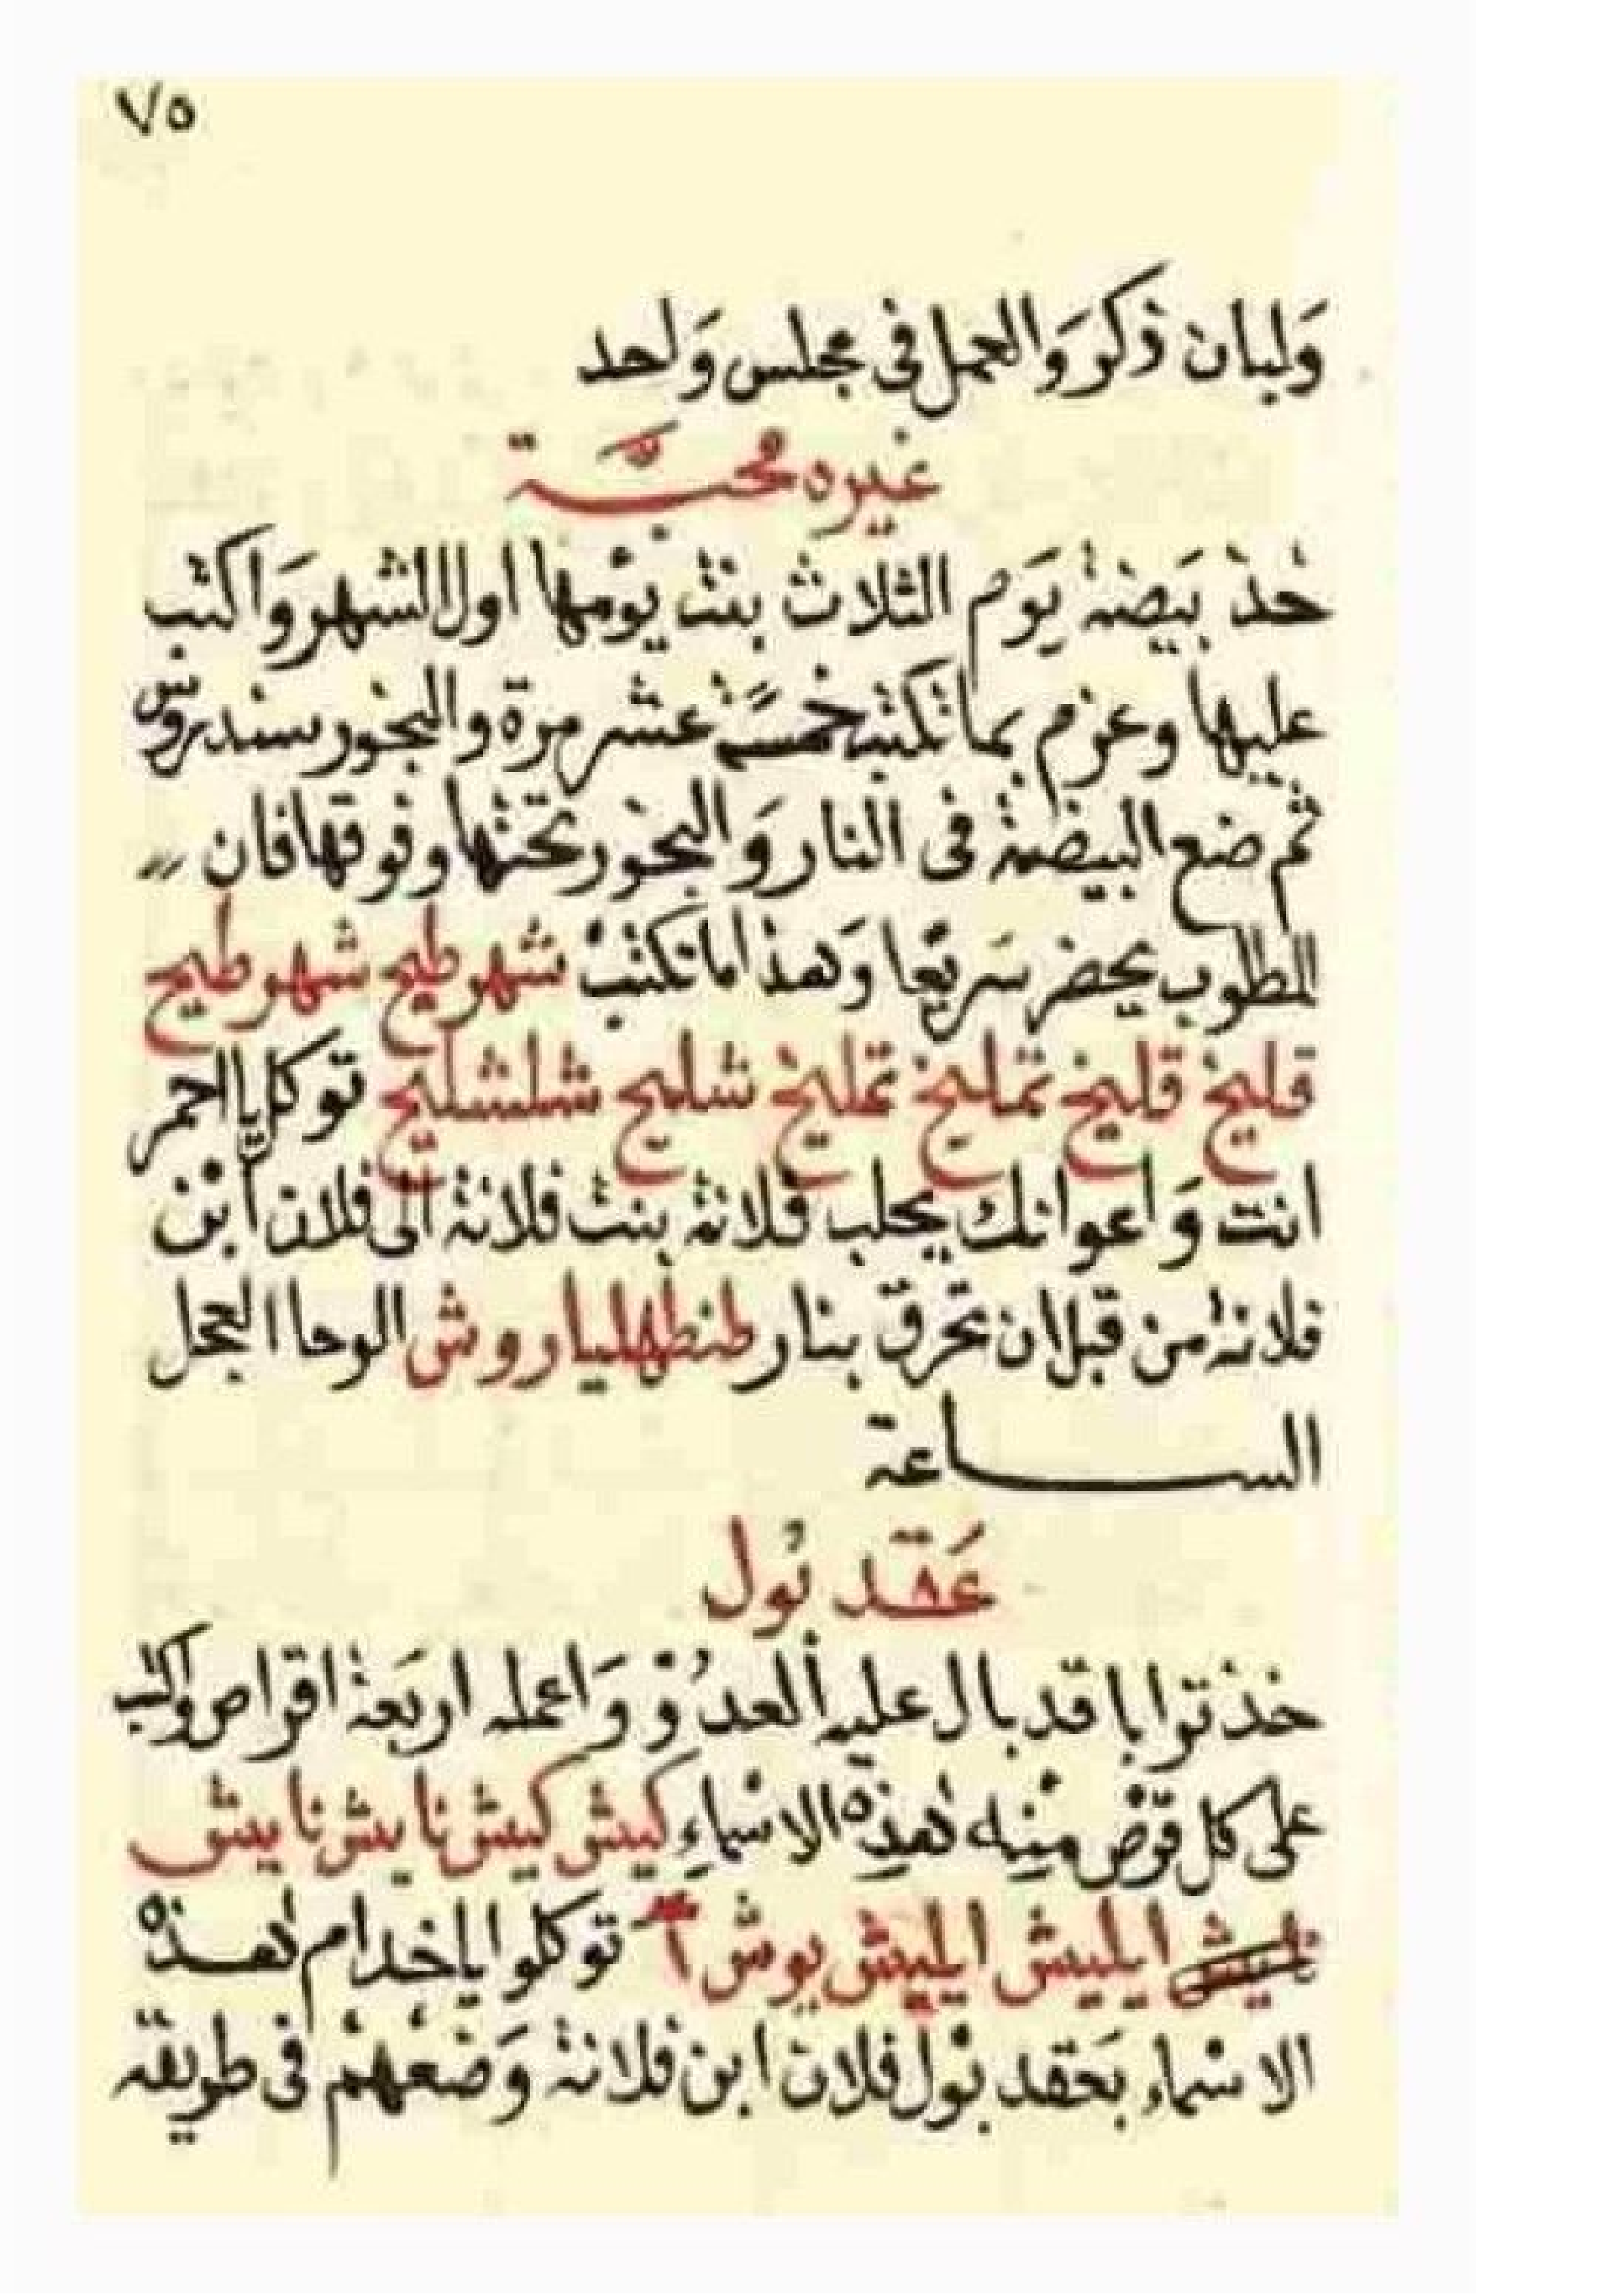 ٧٥
وَلبان ذكر وَالعمل فى مجلس وَاحد
غيره محبَّة
خذ بَيضة يَوم الثلاث بنت يَومها اول الشهر وَاكتب
عليها وعزم بما تكتب خمسَة عشر مرة والبخور سندروس
ثم ضع البيضة فى النار وَ البخور تحتها وفوقها فان
المطلوب يحضر سَريعا وَهذا ما تكتبْ شهرطيح شهوطيح
قليخ قليخ تمليخ تمليخ شليح شلشليح توكل يا احمر
انت وَ اعوانك يجلب فلانة بنت فلانة الى فلان ابن
فلانة من قبل ان تحرق بنار طنطهلياروش الوحا العجل
الساعة
عَقد بَول
خذ ترابا قد بال عليه العدُوْ وَاعمله اربَعة اقراص واكتب
على كل قرْص منِه هذِه الاسْماءِ كيش كيش نايش نايش
ايليش ايليش يوش توكلوا ياخدام هذه
الاسْماء بَعقد بَول فلان ابن فلانة وَضعْهمْ فى طريقه